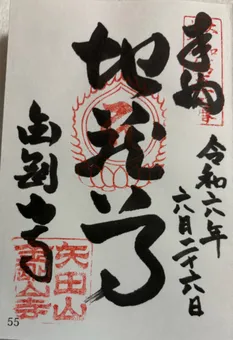 奉拝
令和六年
六月二十六日
地蔵尊
金剛山寺
矢田山
金剛山寺
55